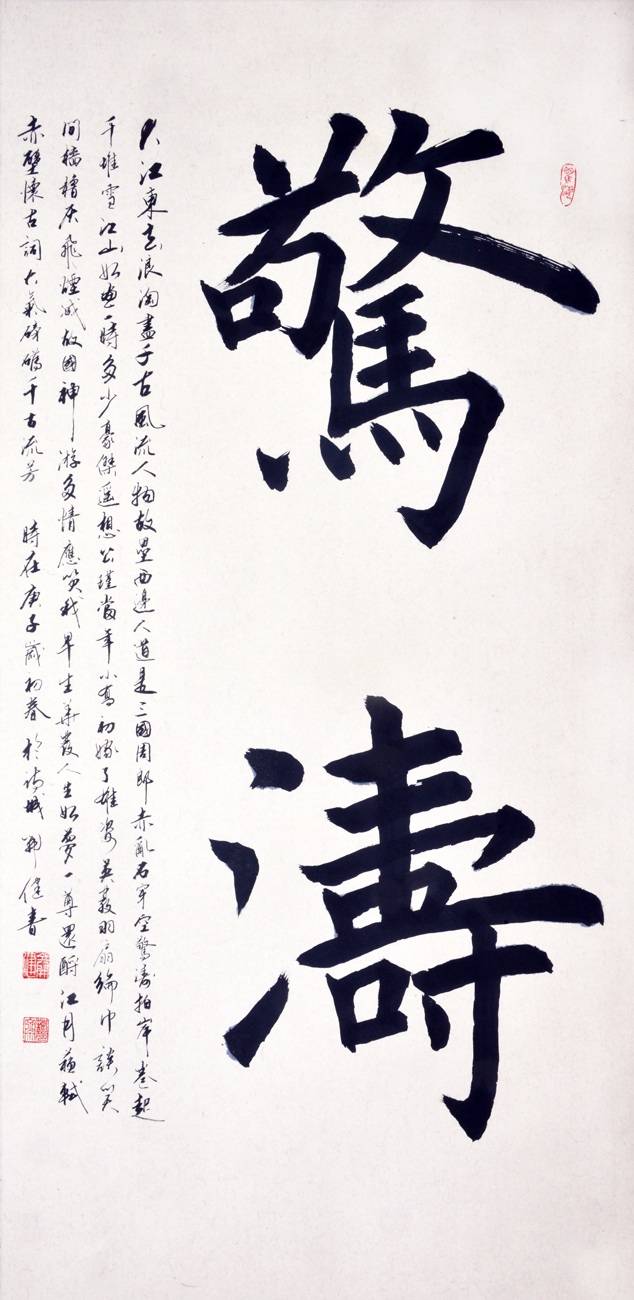 驚濤
大江東去浪淘盡千古風流人物故壘西邊人道是三國周郎赤亂石穿空驚濤拍岸卷起
千堆雪江山如畫一時多少豪傑遥想公瑾當年小喬初嫁了雄姿英發羽扇綸巾談笑
間檣櫓灰飛煙滅故國神游多情應笑我早生華發人生如夢一尊還酹江月蘇軾
赤壁懷古詞大氣磅礴千古流芳 時在庚子歲初春於城健書